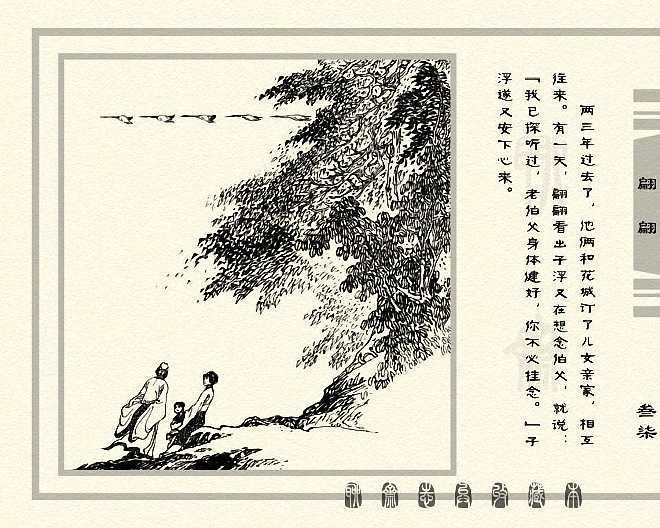 两三年过去了，他俩和花城订了儿女亲家，相互
往来。有一天，翩翩看出子浮又在想念伯父，就说：
『我已探听过，老伯父身体健好，你不必挂念。』子
浮遂又安下心来。
翩翩
叁柒
聊斋志异收藏本